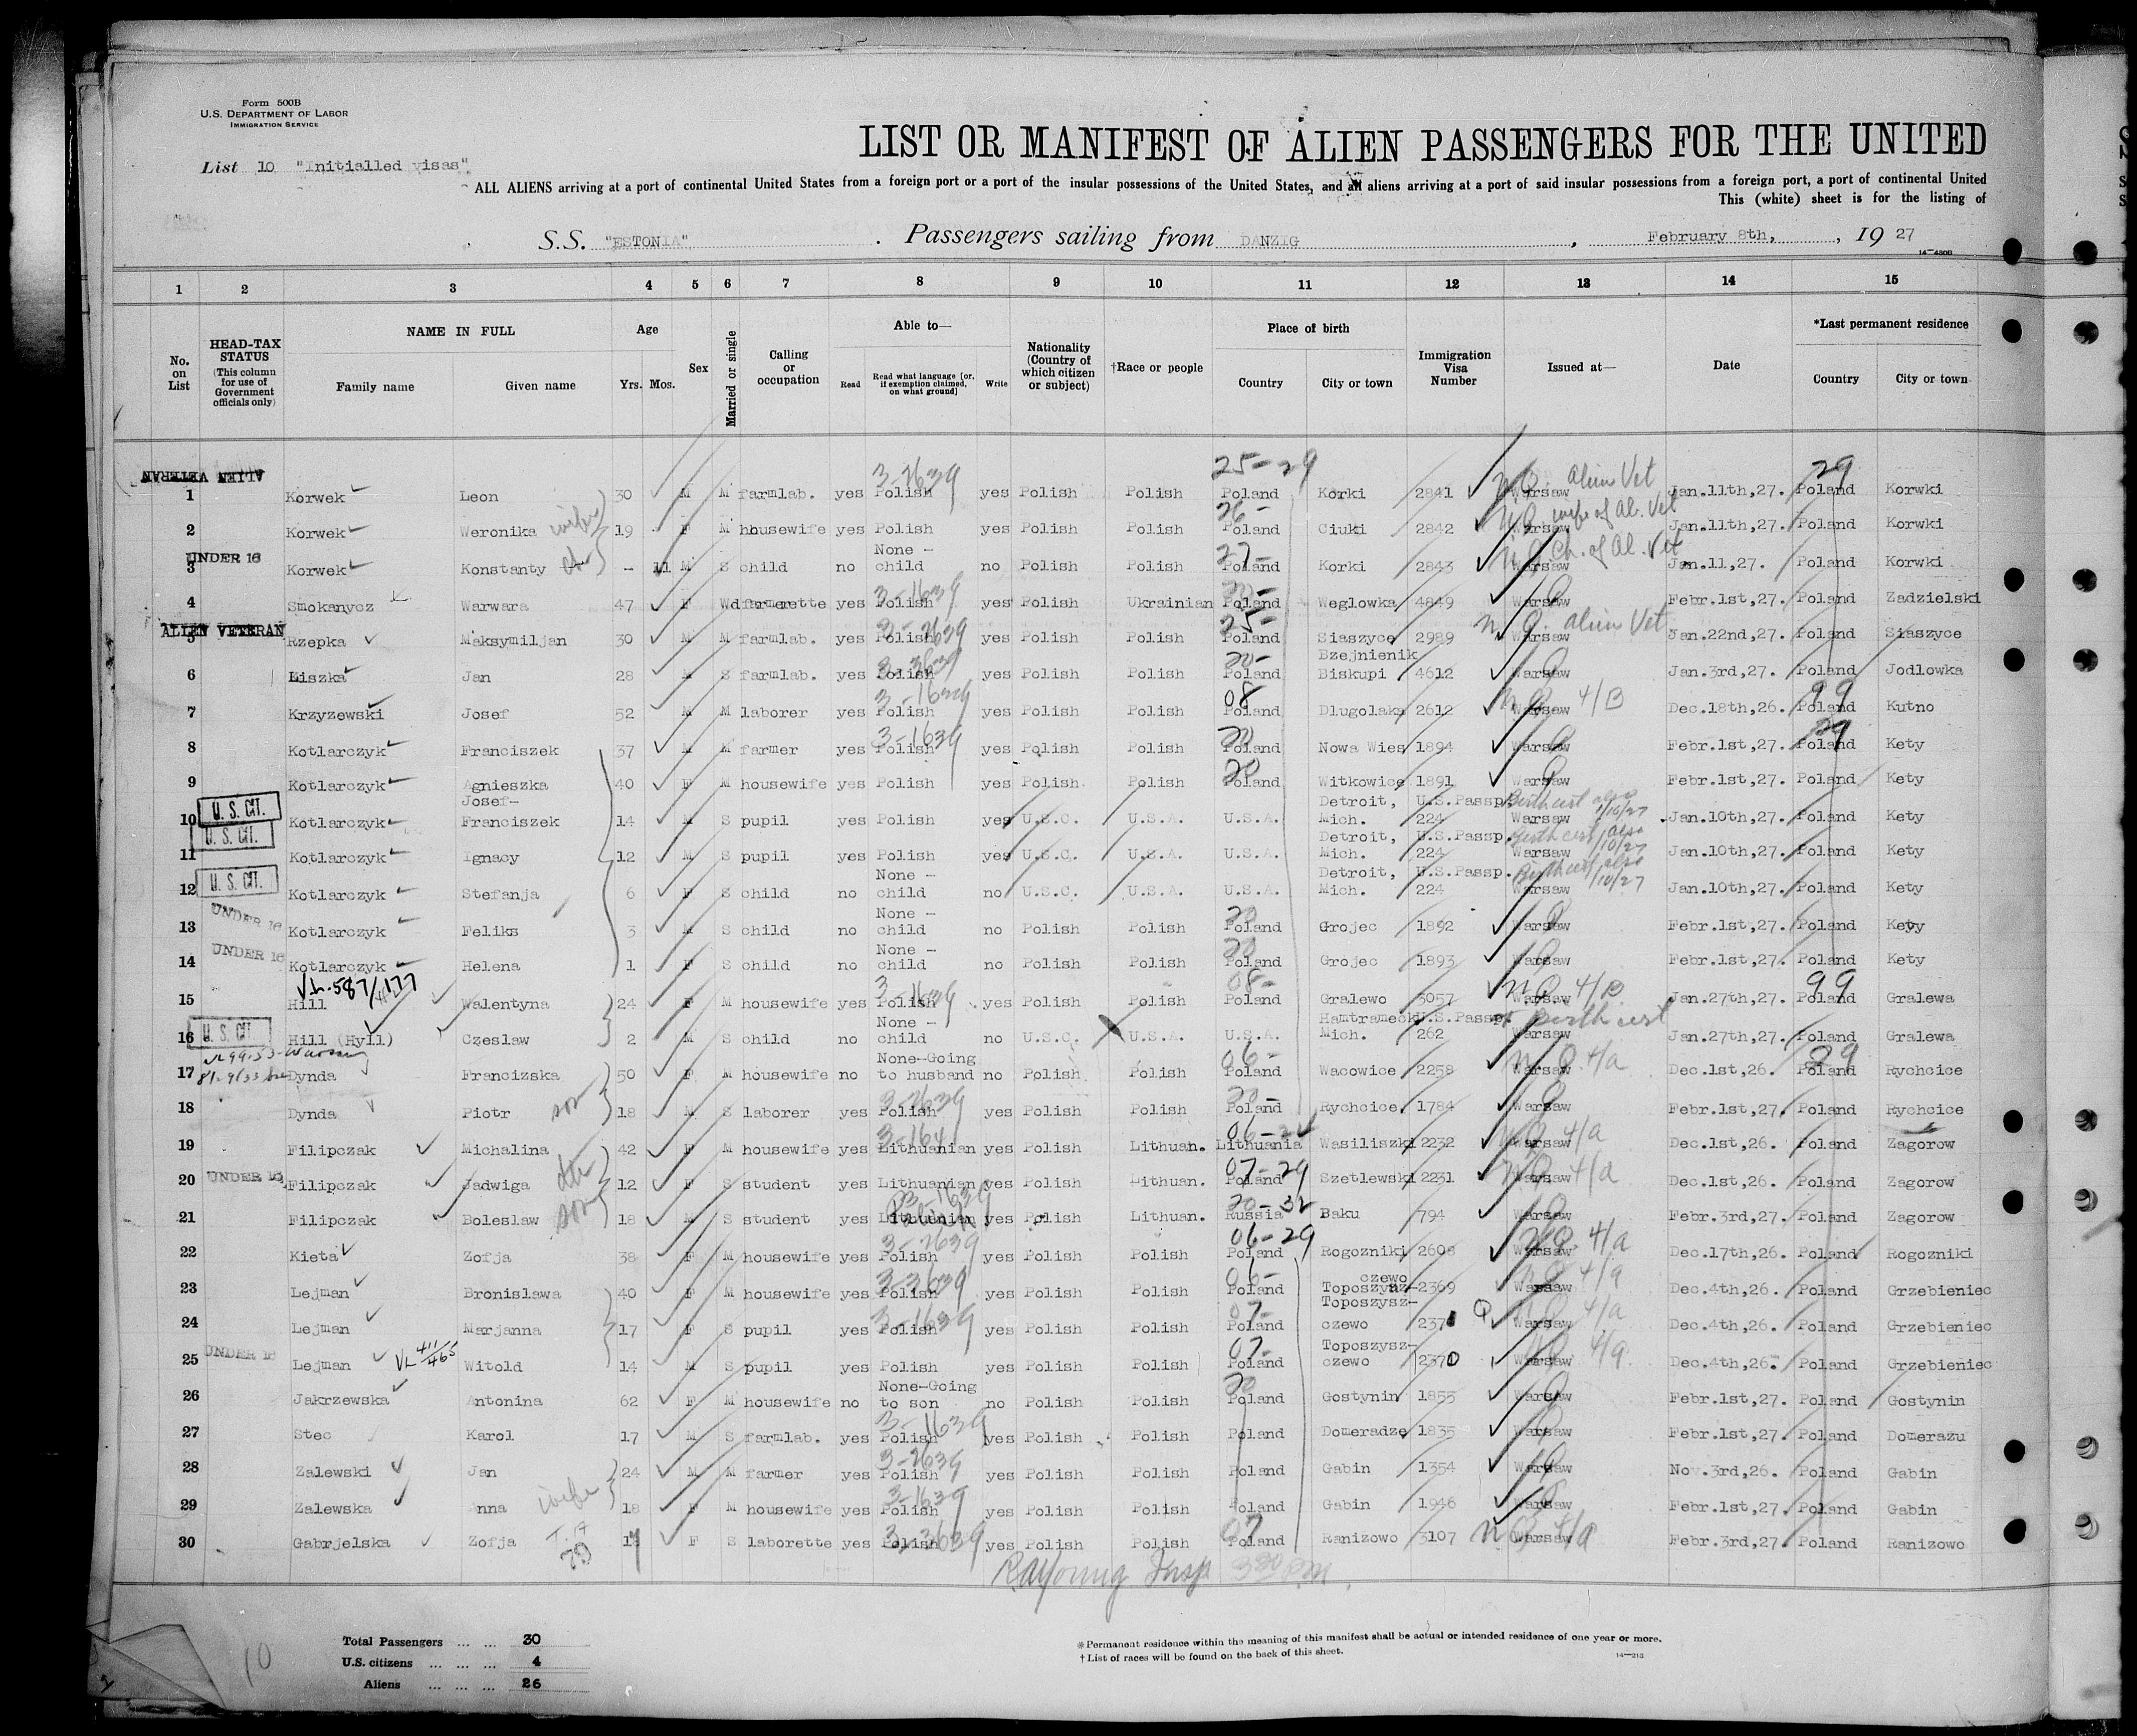 Form 500B
U.S. DEPARTMENT OF LABOR
IMMIGRATION SERVICE
LIST OR MANIFEST OF ALIEN PASSENGERS FOR THE UNITED
List 10 "Initialled visas"
ALL ALIENS arriving at a port of continental United States from a foreign port or a port of the insular possessions of the United States, and all aliens arriving at a port of said insular possessions from a foreign port, a port of continental United
This (white) sheet is for the listing of
S.S. "ESTONIA" Passengers sailing from DANZIG, February 8th, 1927
14-430B
1 2 3 4 5 6 7 8 9 10 11 12 13 14 15
No. on List
HEAD-TAX STATUS (This column for use of Government officials only)
NAME IN FULL Family name Given name
Age Yrs. Mos.
Sex
Married or single
Calling or occupation
Able to— Read Read what language [or, if exemption claimed, on what ground] Write
Nationality (Country of which citizen or subject)
†Race or people
Place of birth Country City or town
Immigration Visa Number
Issued at—
Date
*Last permanent residence Country City or town
ALIEN VETERAN 3-2639 25-29 alien Vet 29
1 Korwek Leon 30 M M farmlab. yes Polish yes Polish Polish Poland Korki 2841 Warsaw Jan.11th,27. Poland Korwki
26- wife of Al. Vet
2 Korwek Weronika wife 19 F M housewife yes Polish yes Polish Polish Poland Ciuki 2842 Warsaw Jan.11th,27. Poland Korwki
UNDER 16 None - 27- Ch. of Al. Vet
3 Korwek Konstanty - 11 M S child no child no Polish Polish Poland Korki 2843 Warsaw Jan.11,27. Poland Korwki
3-1639 20-
4 Smokanycz Warwara 47 F Wd farmerette yes Polish yes Polish Ukrainian Poland Weglowka 4849 Warsaw Febr.1st,27. Poland Zadzielski
ALIEN VETERAN 3-2639 25- alien Vet.
5 Rzepka Maksymiljan 30 M M farmlab. yes Polish yes Polish Polish Poland Siaszyce 2989 Warsaw Jan.22nd,27. Poland Siaszyce
3-3639 20- Bzejnienik
6 Liszka Jan 28 M S farmlab. yes Polish yes Polish Polish Poland Biskupi 4612 Warsaw Jan.3rd,27. Poland Jodlowka
3-1639 08 4/B 99
7 Krzyzewski Josef 52 M M laborer yes Polish yes Polish Polish Poland Dlugolaka 2612 Warsaw Dec.18th,26. Poland Kutno
3-1639 20 29
8 Kotlarczyk Franciszek 37 M M farmer yes Polish yes Polish Polish Poland Nowa Wies 1894 Warsaw Febr.1st,27. Poland Kety
20
9 Kotlarczyk Agnieszka 40 F M housewife yes Polish yes Polish Polish Poland Witkowice 1891 Warsaw Febr.1st,27. Poland Kety
U.S. CIT. Josef- Detroit, U.S.Passp. Birth cert also 1/10/27
10 Kotlarczyk Franciszek 14 M S pupil yes Polish yes U.S.C. U.S.A. U.S.A. Mich. 224 Warsaw Jan.10th,27. Poland Kety
U.S. CIT. Detroit, U.S.Passp. Birth cert also 1/10/27
11 Kotlarczyk Ignacy 12 M S pupil yes Polish yes U.S.C. U.S.A. U.S.A. Mich. 224 Warsaw Jan.10th,27. Poland Kety
U.S. CIT. None - Detroit, U.S.Passp. Birth cert also 1/10/27
12 Kotlarczyk Stefanja 6 F S child no child no U.S.C. U.S.A. U.S.A. Mich. 224 Warsaw Jan.10th,27. Poland Kety
UNDER 16 None - 20
13 Kotlarczyk Feliks 3 M S child no child no Polish Polish Poland Grojec 1892 Warsaw Febr.1st,27. Poland Kety
UNDER 16 None - 20
14 Kotlarczyk Helena 1 F S child no child no Polish Polish Poland Grojec 1893 Warsaw Febr.1st,27. Poland Kety
VL.587/177 3-1639 08- 4/B 99
15 Hill Walentyna 24 F M housewife yes Polish yes Polish Polish Poland Gralewo 3057 Warsaw Jan.27th,27. Poland Gralewa
U.S. CIT. None - Hamtrameck U.S.Passp. Birth cert
16 Hill (Hyll) Czeslaw 2 M S child no child no U.S.C. U.S.A. U.S.A. Mich. 262 Warsaw Jan.27th,27. Poland Gralewa
None-Going 06- 4/a 29
17 Dynda Francizska 50 F M housewife no to husband no Polish Polish Poland Wacowice 2258 Warsaw Dec.1st,26. Poland Rychcice
3-2639 20-
18 Dynda Piotr son 18 M S laborer yes Polish yes Polish Polish Poland Rychcice 1784 Warsaw Febr.1st,27. Poland Rychcice
3-1641 06- 4/a
19 Filipczak Michalina 42 F M housewife yes Lithuanian yes Polish Lithuan. Lithuania Wasiliszki 2232 Warsaw Dec.1st,26. Poland Zagorow
UNDER 16 07-29 4/a
20 Filipczak Jadwiga dtr 12 F S student yes Lithuanian yes Polish Lithuan. Poland Szetlewski 2231 Warsaw Dec.1st,26. Poland Zagorow
3-1639 Polish 20-32
21 Filipczak Boleslaw son 18 M S student yes Lithuanian yes Polish Lithuan. Russia Baku 794 Warsaw Febr.3rd,27. Poland Zagorow
3-2639 06-29 4/a
22 Kieta Zofja 38 F M housewife yes Polish yes Polish Polish Poland Rogozniki 2608 Warsaw Dec.17th,26. Poland Rogozniki
3-3639 06- czewo 4/a
23 Lejman Bronislawa 40 F M housewife yes Polish yes Polish Polish Poland Toposzysz- 2369 Warsaw Dec.4th,26. Poland Grzebieniec
3-1639 07- Toposzysz- 4/a
24 Lejman Marjanna 17 F S pupil yes Polish yes Polish Polish Poland czewo 2371 Warsaw Dec.4th,26. Poland Grzebieniec
UNDER 16 VL 411/465 07- Toposzysz- 4/a
25 Lejman Witold 14 M S pupil yes Polish yes Polish Polish Poland czewo 2370 Warsaw Dec.4th,26. Poland Grzebieniec
None-Going 20
26 Jakrzewska Antonina 62 F M housewife no to son no Polish Polish Poland Gostynin 1855 Warsaw Febr.1st,27. Poland Gostynin
3-1639
27 Stec Karol 17 M S farmlab. yes Polish yes Polish Polish Poland Domeradze 1835 Warsaw Febr.1st,27. Poland Domerazu
3-2639
28 Zalewski Jan 24 M M farmer yes Polish yes Polish Polish Poland Gabin 1354 Warsaw Nov.3rd,26. Poland Gabin
3-1639
29 Zalewska Anna wife 18 F M housewife yes Polish yes Polish Polish Poland Gabin 1946 Warsaw Febr.1st,27. Poland Gabin
3-3639 07 4/a
30 Gabrjelska Zofja 17 F S laborette yes Polish yes Polish Polish Poland Ranizowo 3107 Warsaw Febr.3rd,27. Poland Ranizowo
RAYoung Insp 3 30 P.M.
Total Passengers ... ... 30
U.S. citizens ... ... ... 4
Aliens ... ... ... 26
10
*Permanent residence within the meaning of this manifest shall be actual or intended residence of one year or more.
†List of races will be found on the back of this sheet.
14-213